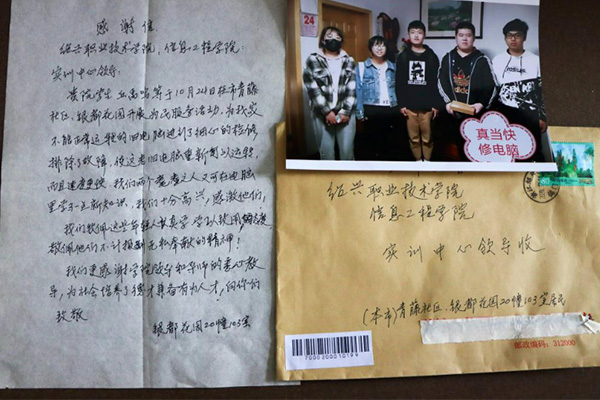 感谢信
绍兴职业技术学院，信息工程学院
实训中心领导：
贵院学生丘高鸣等于10月24日在市青藤
社区，银都花园开展为民服务活动，为我家
不能正常运转的旧电脑进行了细心的检修
排除了故障，使这老旧电脑重新可以运转，
而且速度更快。我们两个耄耋之人又可在电脑
里学一点新知识，我们十分高兴，感谢他们，
我们敬佩这些年轻人认真学 学以致用
敬佩他们不计报酬无私奉献的精神！
我们更感谢学院领导和导师的悉心教
导，为社会培养了德才兼备有为人才，向你们
致敬
银都花园20幢103室
24
真当快
修电脑
绍兴职业技术学院
信息工程学院
实训中心领导收
(本市)青藤社区，银都花园20幢103室居民
7000200010199
邮政编码：312000